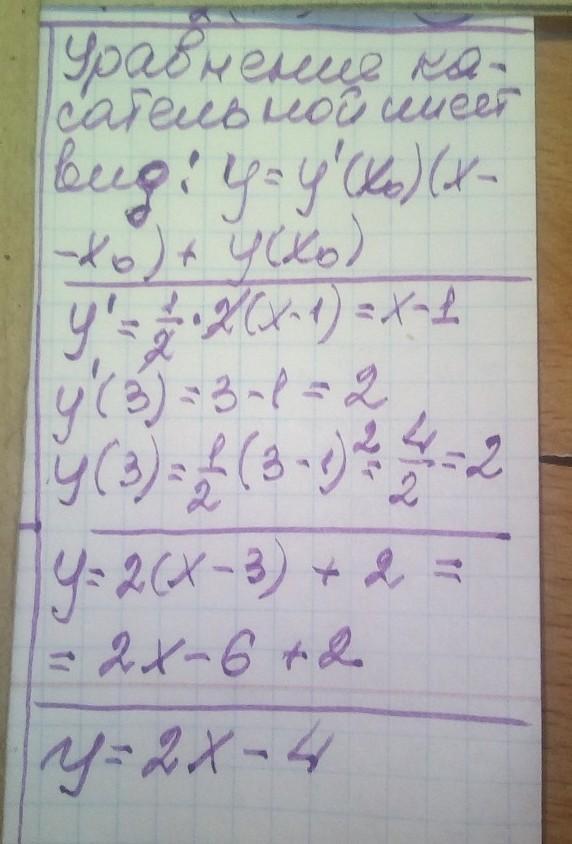 Уравнение ка-
сательной имеет
вид: y = y'(x₀)(x-
-x₀) + y(x₀)
y' = 1/2 · 2(x-1) = x-1
y'(3) = 3-1 = 2
y(3) = 1/2 (3-1)² = 4/2 = 2
y = 2(x-3) + 2 =
= 2x - 6 + 2
y = 2x - 4